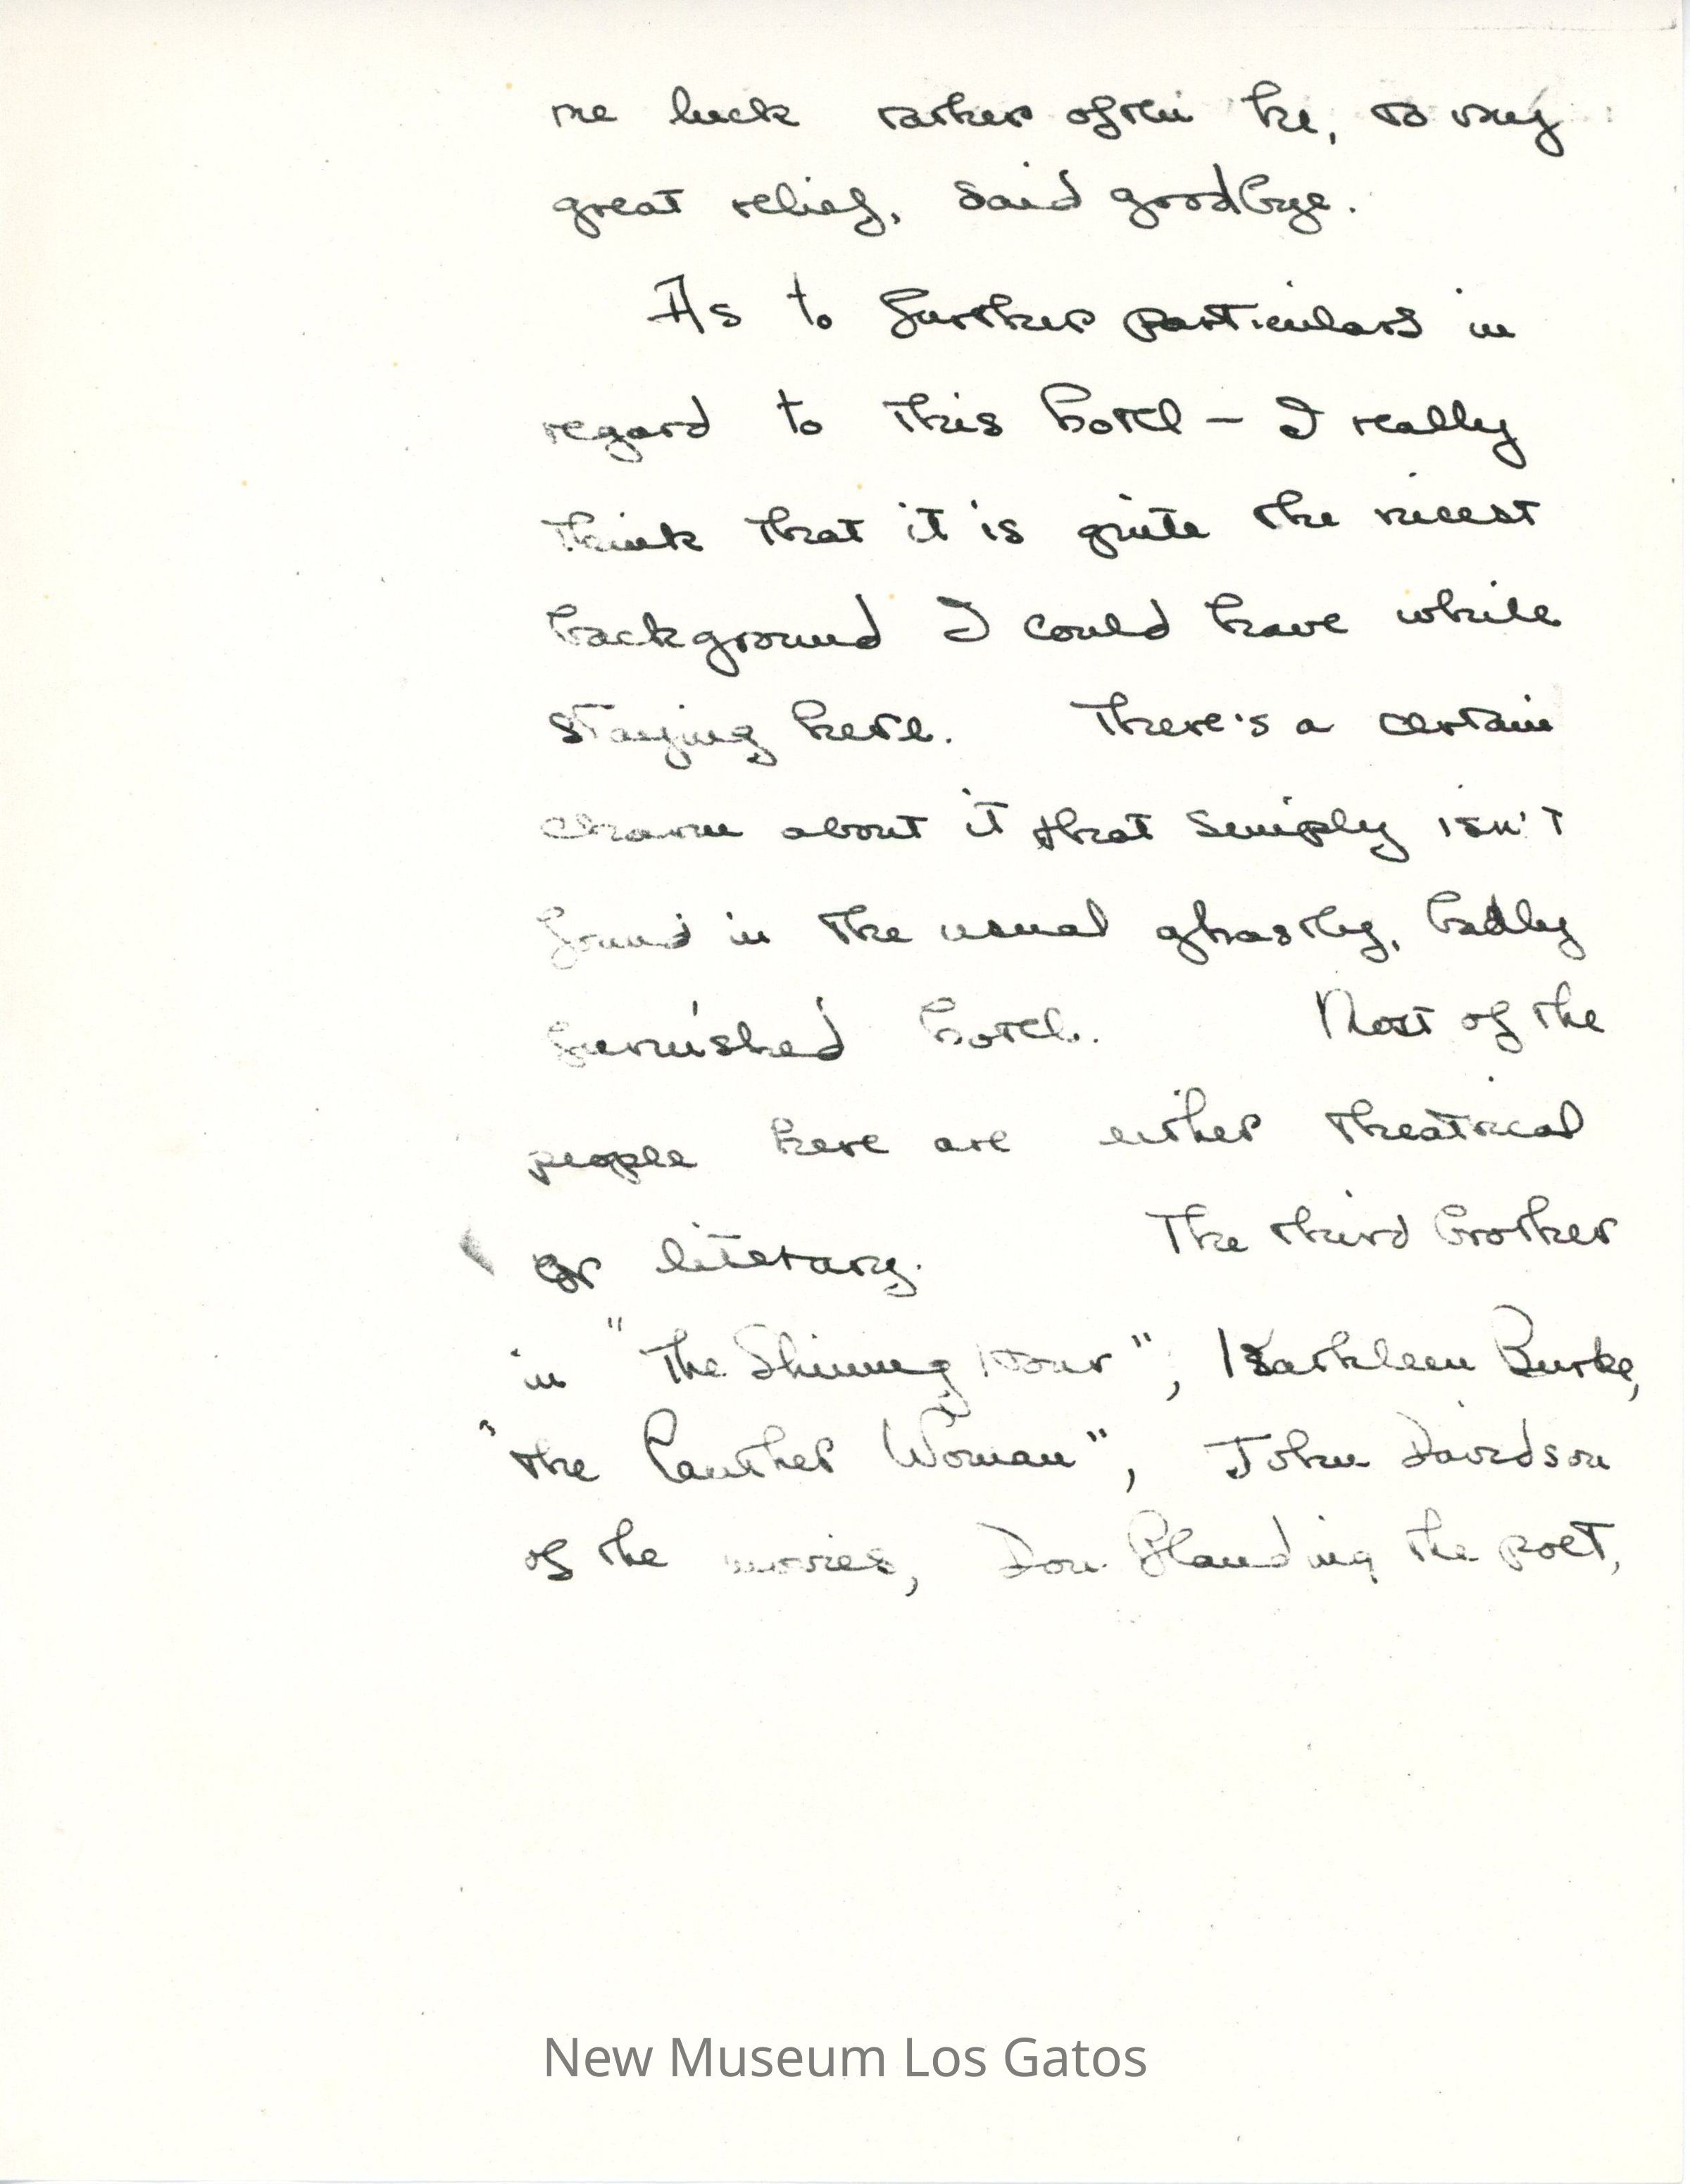 me luck rather often he, to my
great relief, said goodbye.
As to further particulars in
regard to this hotel - I really
think that it is quite the nicest
background I could have while
staying here. There's a certain
charm about it that simply isn't
found in the usual ghastly, badly
furnished hotel. Most of the
people here are either theatrical
or literary. The third brother
in "The Shining Hour", Kathleen Burke,
"the Panther Woman", John Davidson
of the movies, Don Blanding the poet,
New Museum Los Gatos